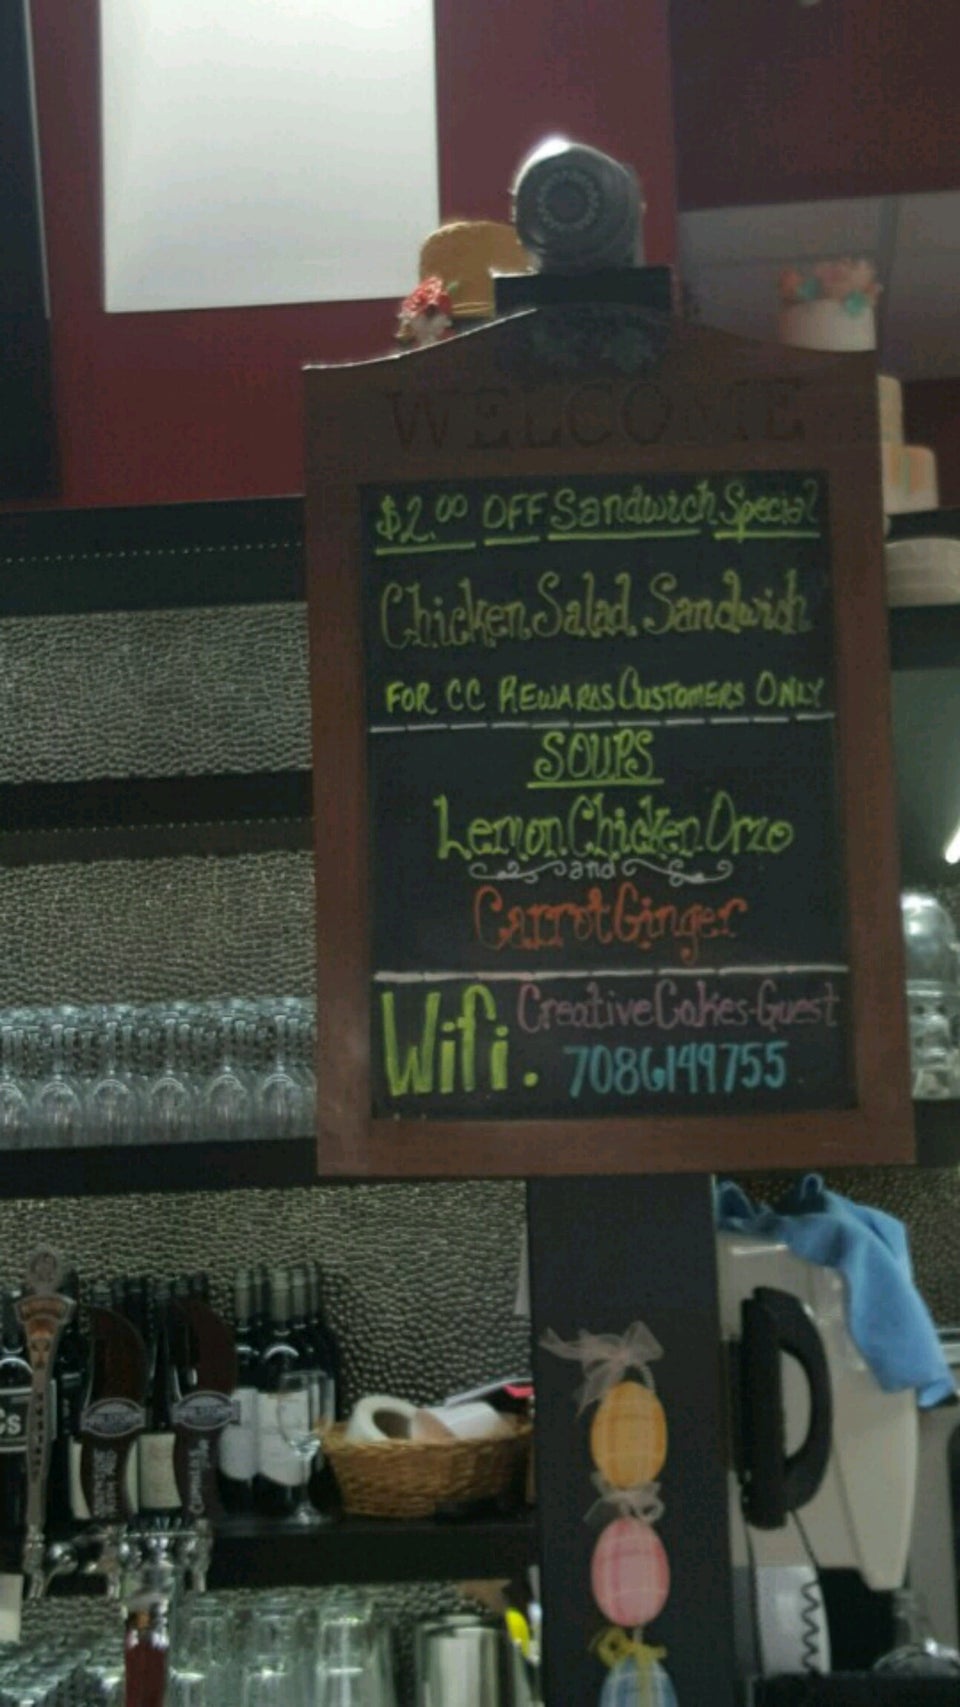 WELCOME
$2.00 OFF Sandwich Special
Chicken Salad Sandwich
FOR CC REWARDS CUSTOMERS ONLY
SOUPS
Lemon Chicken Orzo
and
Carrot Ginger
Wifi. CreativeCakes-Guest
7086149755